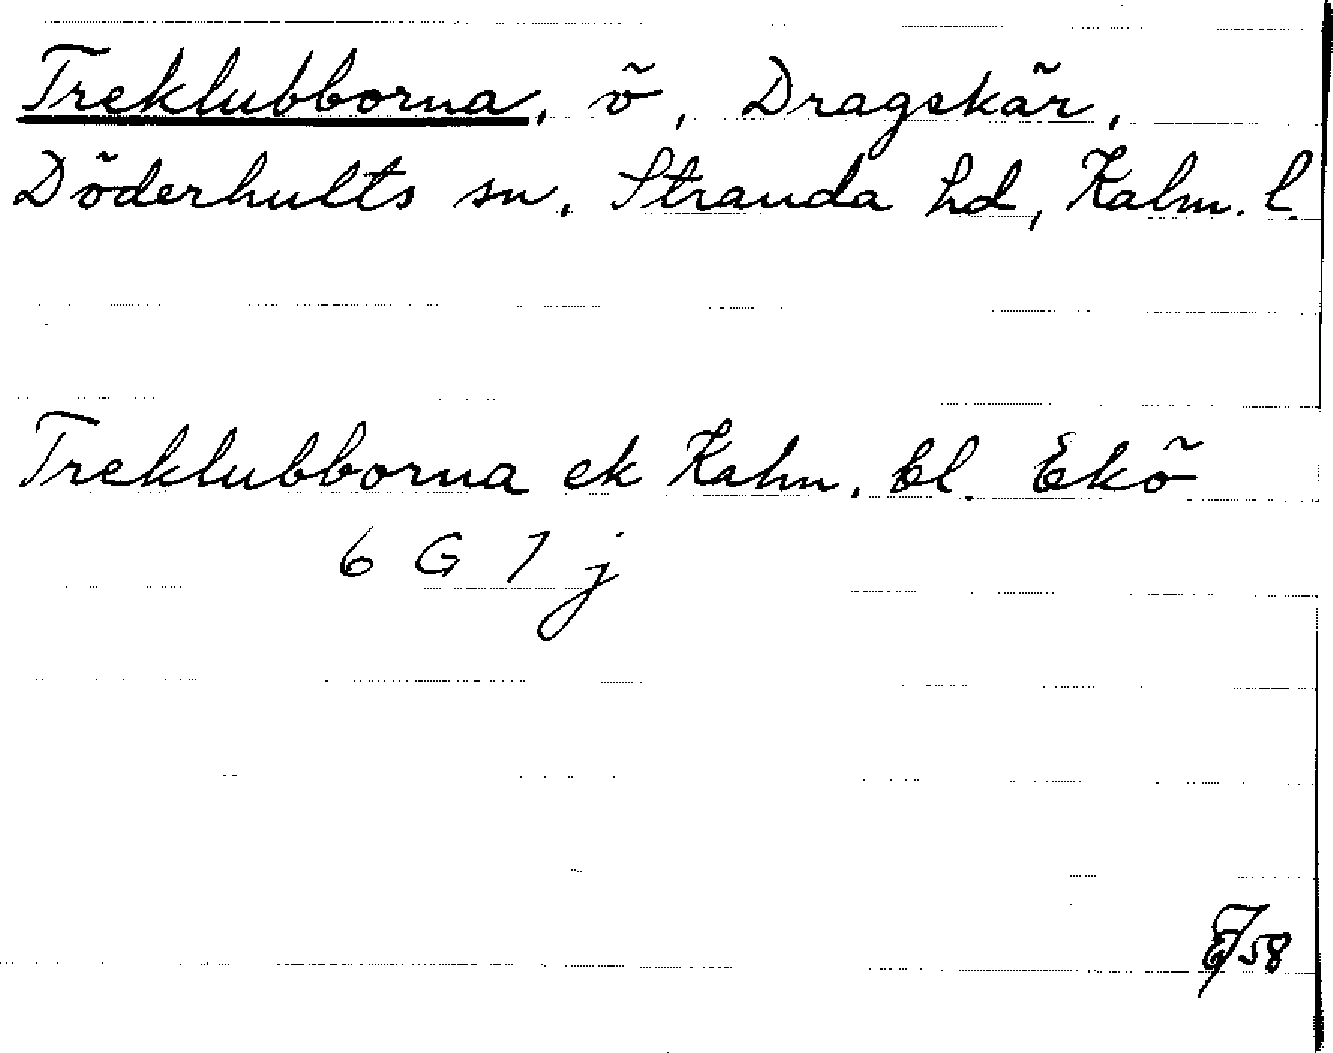 Treklubborna, ö, Dragskär,
Döderhults sn. Stranda hd, Kalm. l.
Treklubborna ek Kalm. bl. Ekö
6 G 7 j
58